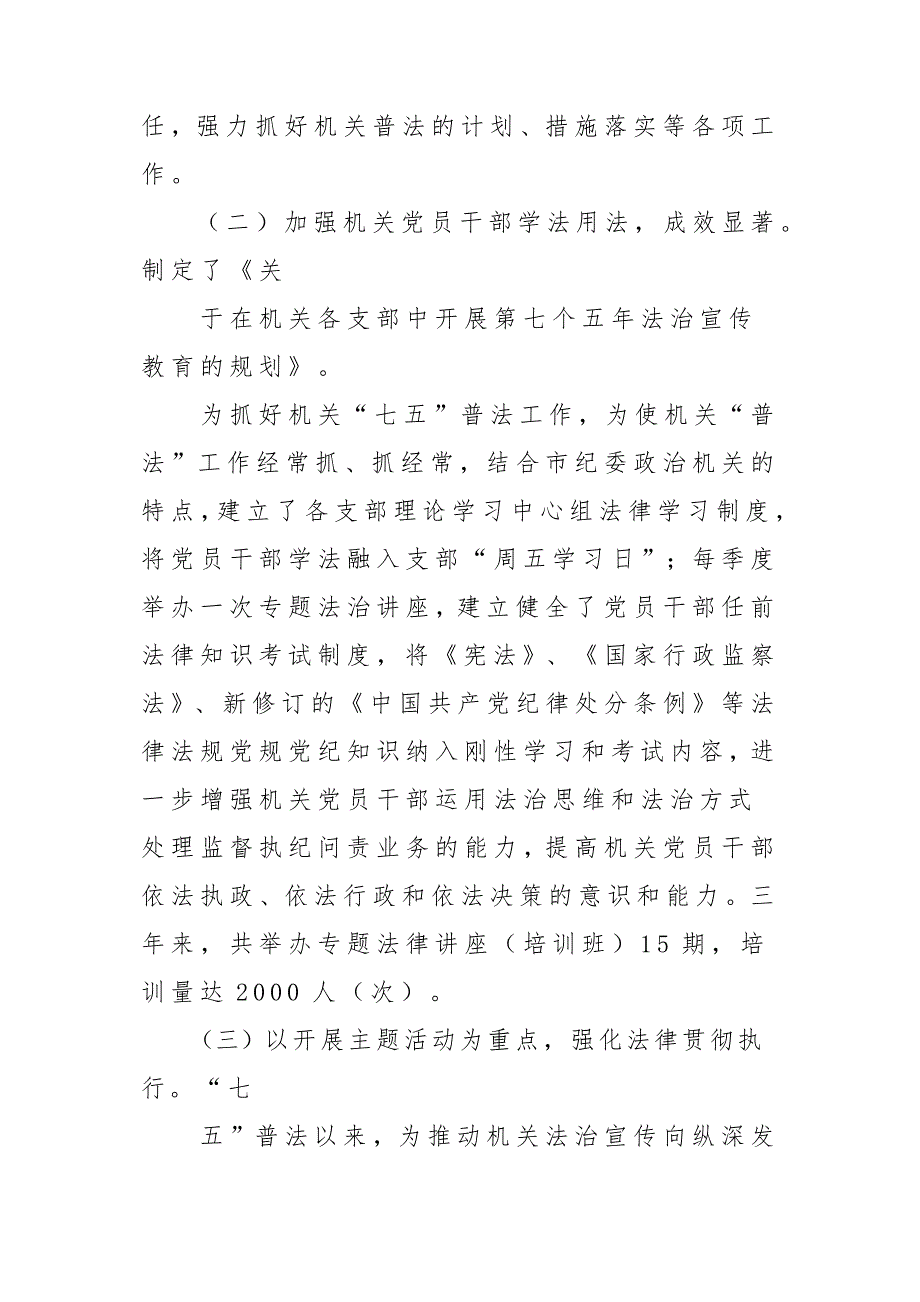 任，强力抓好机关普法的计划、措施落实等各项工
作。
（二）加强机关党员干部学法用法，成效显著。
制定了《关
于在机关各支部中开展第七个五年法治宣传
教育的规划》。
为抓好机关“七五”普法工作，为使机关“普
法”工作经常抓、抓经常，结合市纪委政治机关的
特点，建立了各支部理论学习中心组法律学习制度，
将党员干部学法融入支部“周五学习日”；每季度
举办一次专题法治讲座，建立健全了党员干部任前
法律知识考试制度，将《宪法》、《国家行政监察
法》、新修订的《中国共产党纪律处分条例》等法
律法规党规党纪知识纳入刚性学习和考试内容，进
一步增强机关党员干部运用法治思维和法治方式
处理监督执纪问责业务的能力，提高机关党员干部
依法执政、依法行政和依法决策的意识和能力。三
年来，共举办专题法律讲座（培训班）15期，培
训量达2000人（次）。
（三）以开展主题活动为重点，强化法律贯彻执
行。“七
五”普法以来，为推动机关法治宣传向纵深发